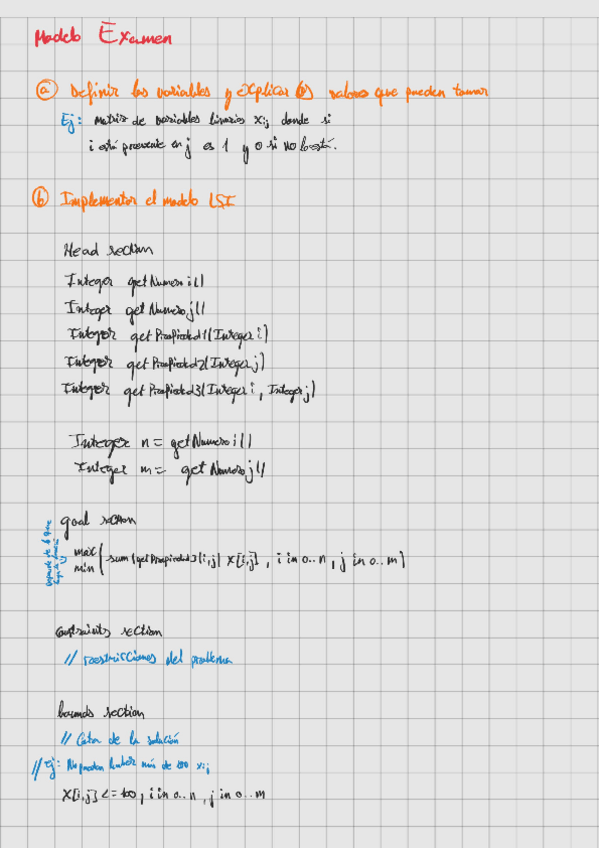 Modelo Examen
a) Definir las variables y explicar los valores que pueden tomar
Ej: Matriz de variables binarias xij donde si
i está presente en j es 1 y 0 si no lo está.
b) Implementar el modelo LSI
Head section
Integer getNumeroi()
Integer getNumeroj()
Integer getPropiedad1(Integer i)
Integer getPropiedad2(Integer j)
Integer getPropiedad3(Integer i, Integer j)
Integer n = getNumeroi()
Integer m = getNumeroj()
goal section
Depende de lo que
max
min
sum(getPropiedad3(i,j) X[i,j], i in 0..n, j in 0..m)
constraints section
// restricciones del problema
bounds section
// Cota de la solución
// Ej: No pueden haber más de 100 xij
X[i,j] <= 100, i in 0..n, j in 0..m